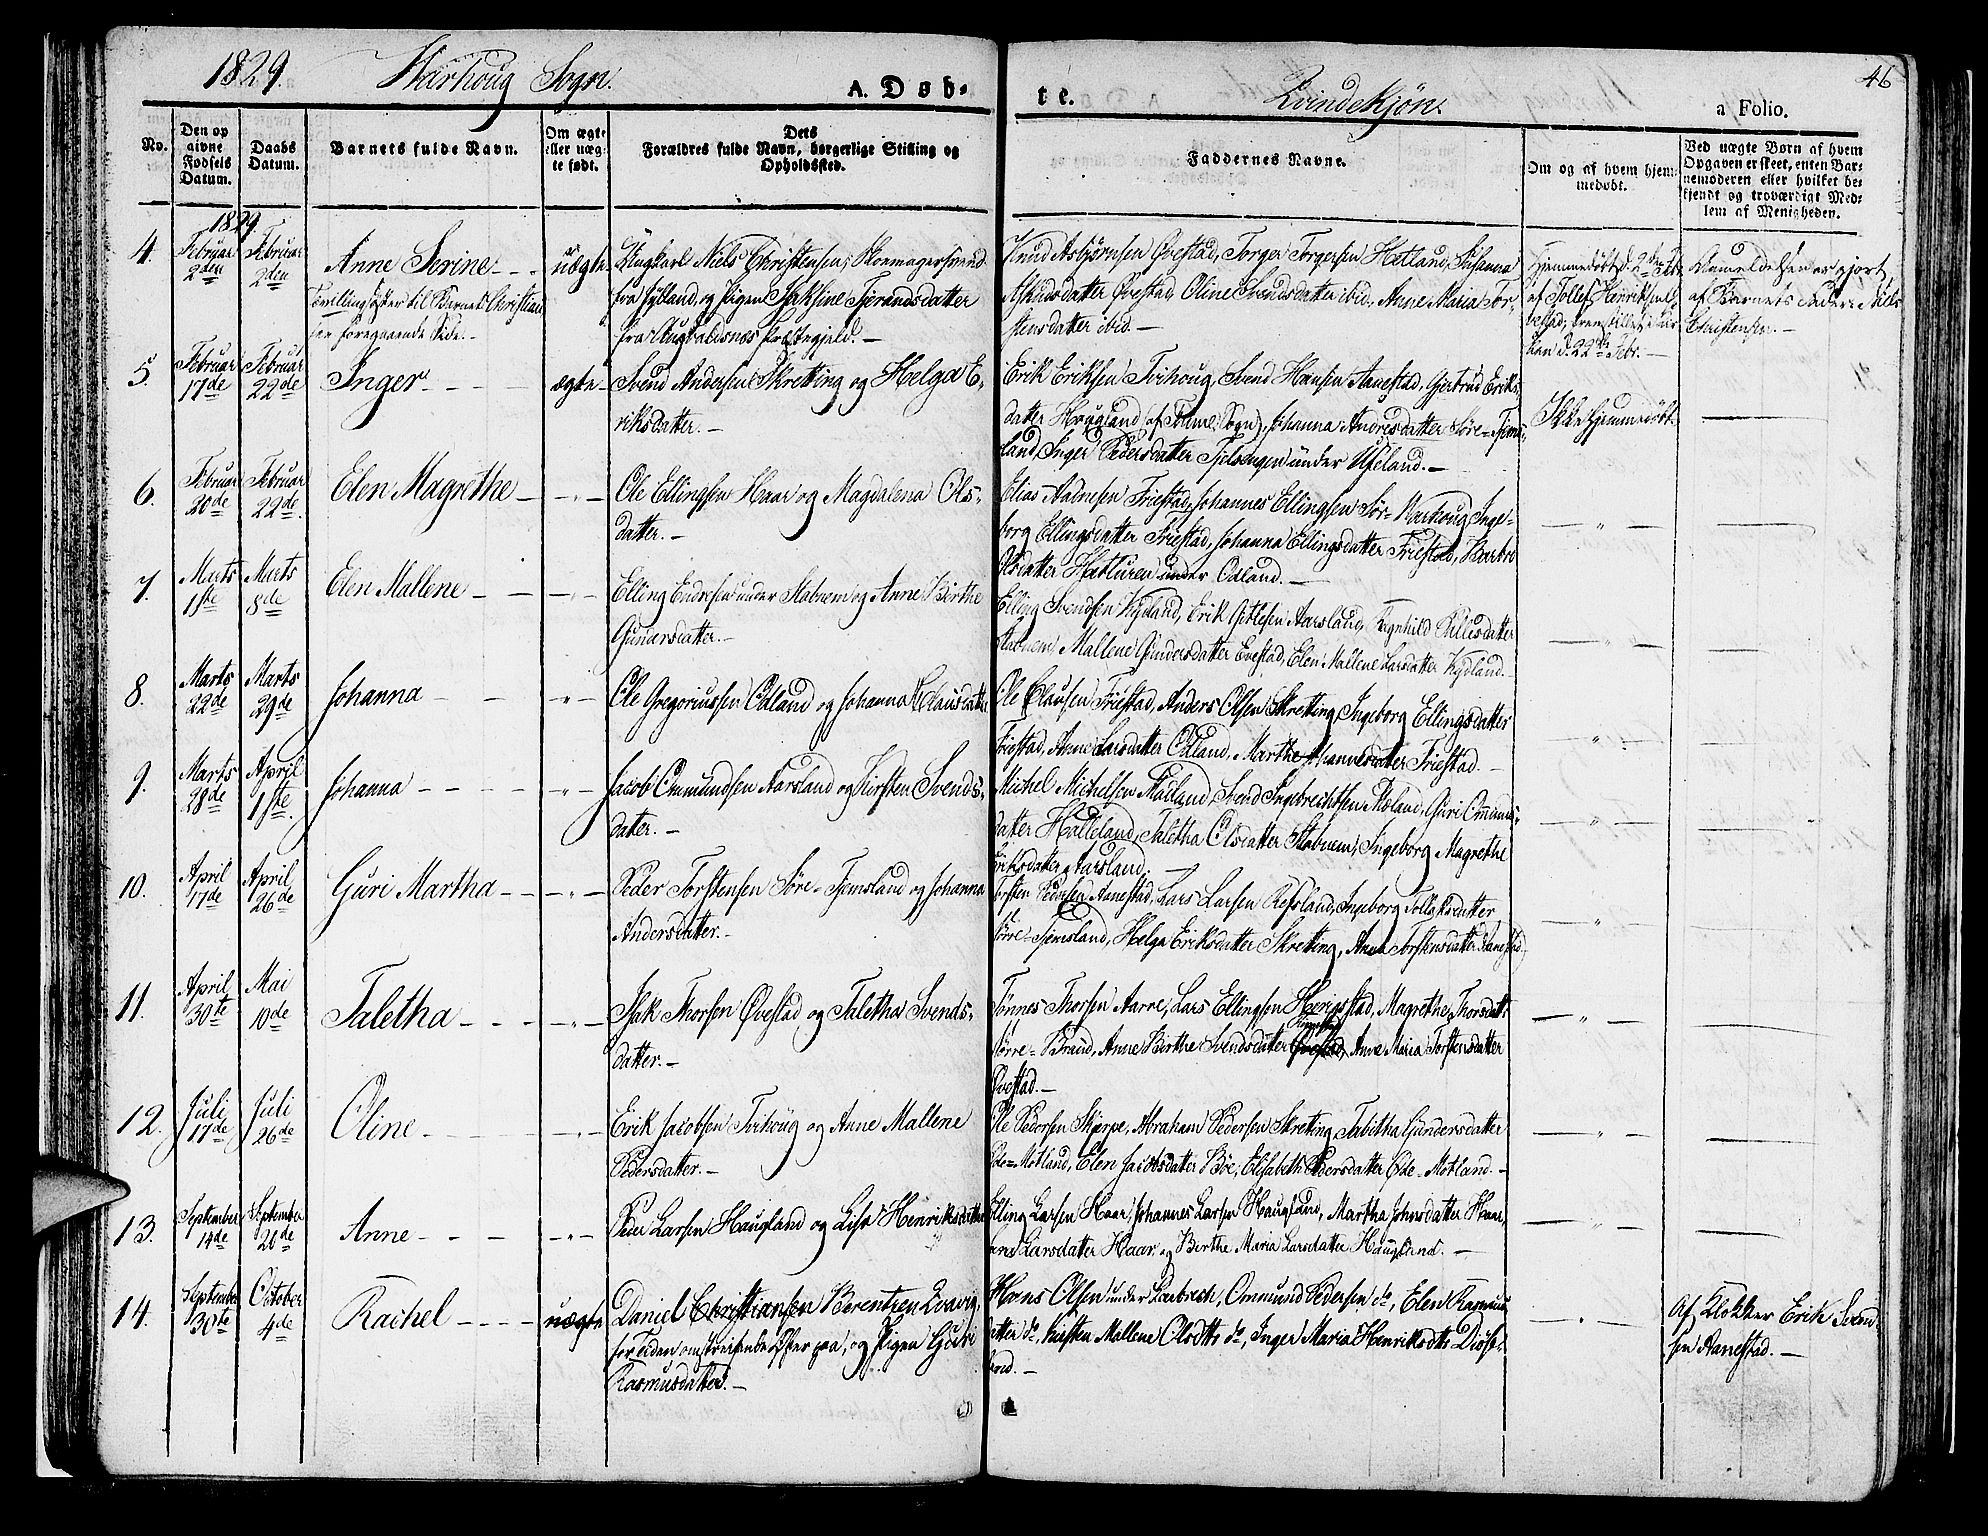 1829. Warhoug Sogn. A. Døb-
te. Qvindekjøn. a Folio. 46
No. Den opgivne Fødsels Datum. Daabs Datum. Barnets fulde Navn. Om ægte eller uægte født. Dets Forældres fulde Navn, borgerlige Stilling og Opholdssted.
Faddernes Navne. Om og af hvem hjemmedøbt. Ved uægte Børn af hvem Opgaven er skeet, enten Barnemoderen eller hvilket bekjendt og troværdigt Medlem af Menigheden.
1829
4. Februar 2den Februar 2den Anne Serine - - uægte
Tvillingsøster til Barnet Christian
see foregaaende Side. -
Ungkarl Niels Christensen, Skomagersvend
fra Jylland, og Pigen Jakfine Tjerandsdatter
fra Augvaldsnes Præstegjeld. -
Knud Asbjørnsen Øvestad, Torger Torgersen Hetland, Susanna
Asknudsdatter Øvestad, Oline Svendsdatter ibid, Anne Maria Tor-
stensdatter ibid. -
Hjemmedøbt d. 2den Feb.
af Tollef Henriksen
fremstillet i Kir-
ken d. 22de Febr. -
Anmeldelsen er gjort
af Barnets Fader Niels
Christensen. -
5. Februar 17de Februar 22de Inger. - - - ægte -
Svend Andersen Skretting og Helga E-
riksdatter. -
Erik Eriksen Tvihoug, Svend Hansen Aanestad, Gjertrud Eriks-
datter Hougland (af Thime Sogn), Johanna Andersdatter Søre-Tjems-
land, Inger Pedersdatter Tjelsengen under Ueland. -
Ikke hjemmedøbt.
6. Februar 20de Februar 22de Elen Magrethe - - " -
Ole Ellingsen Haar og Magdalena Ols-
datter. -
Elias Aadnesen Friestad, Johannes Ellingsen Sør-Varhoug, Inge-
borg Ellingsdatter Friestad, Johanna Ellingsdatter Friestad, Barbro
Olsdatter Hatturen under Odland. -
- " -
7. Marts 1ste Marts 8de Elen Mallene - - - " -
Elling Endresen under Stabnem og Anne Birthe
Gunarsdatter. -
Elling Svendsen Kydland, Erik Osttesen Aarsland, Ragnhild Pallesdatter
Stabnem, Mallene Gundersdatter Evestad, Elen Mallene Larsdatter Kydland. -
- " -
8. Marts 22de Marts 29de Johanna - - - "
Ole Gregoriussen Odland og Johanna Clausdatter
Ole Clausen Friestad, Anders Olsen Skretting, Ingeborg Ellingsdatter
Friestad, Anne Larsdatter Odland, Marthe Johannesdatter Friestad. -
- " -
9. Marts 28de April 1ste. Johanna - - - - " -
Jacob Ommundsen Aarsland og Kirsten Svends-
datter. -
Michel Michelsen Madland, Svend Ingebrechtsen Moland, Guri Ommunds-
datter Halleland, Taletha Olsdatter Stabnem, Ingeborg Magrethe
Eriksdatter Aarsland. -
- " -
10. April 17de April 26de Guri Martha - - - " -
Peder Torstensen Søre-Tjemsland og Johanna
Andersdatter. -
Torsten Pedersen Aanestad, Lars Larsen Refsland, Ingeborg Tollaksdatter
Søre-Tjemsland, Helga Eriksdatter Skretting, Anna Torstensdatter Aanestad
- " -
11. April 30te Mai 10de Taletha - - - - " -
Isak Thorsen Øvestad og Taletha Svends-
datter. -
Tønnes Thorsen Aarre, Lars Ellingsen Herrigstad, Magrethe Thorsdatt.
Nørre-Braud, Anne Birthe Svendsdatter Øvestad, Anne Maria Torstensdatter
Øvestad. -
- " -
12. Juli 17de Juli 26de Oline - - - " -
Erik Jacobsen Tvihoug og Anne Mallene
Pedersdatter. -
Ole Pedersen Skjerpe, Abraham Pedersen Skretting, Tabitha Gundersdatter
Øde-Motland, Elen Jacobsdatter Bøe, Elisabeth Pedersdatter Øde-Motland. -
- " -
13. September 14de September 20de Anne - - - - " -
Peder Larsen Haugland og Lisa Henriksdatter
Elling Larsen Haar, Johannes Larsen Haugland, Martha Johnsdatter Haar,
Larsdatter Haar og Berthe Maria Larsdatter Haugland. -
- " -
14. September 30te October 4de Rachel - - - - uægte
Daniel Christiansen Berentzen
for Tiden omstreifende og Pigen Guri
Rasmusdatter. -
Hans Olsen under Laubrech, Ommund Pedersen do, Elen Rasmus-
datter do, Kirsten Mallene Olsdtr do, Inger Maria Henriksdtr Diøse-
land. -
- " -
Af Klokker Erik Svend-
sen Aanestad. -